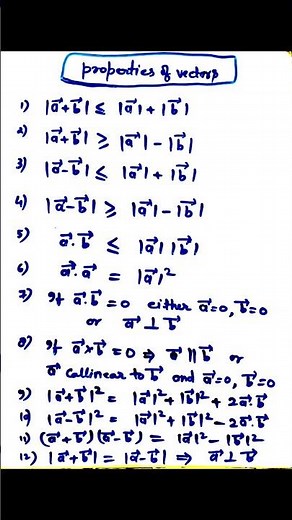 properties of vectors
1) |a⃗+b⃗| ≤ |a⃗| + |b⃗|
2) |a⃗+b⃗| ≥ |a⃗| - |b⃗|
3) |a⃗-b⃗| ≤ |a⃗| + |b⃗|
4) |a⃗-b⃗| ≥ |a⃗| - |b⃗|
5) a⃗.b⃗ ≤ |a⃗| |b⃗|
6) a⃗.a⃗ = |a⃗|²
7) If a⃗.b⃗ = 0 either a⃗=0, b⃗=0
or a⃗ ⊥ b⃗
8) If a⃗×b⃗ = 0 ⇒ a⃗ || b⃗ or
a⃗ collinear to b⃗ and a⃗=0, b⃗=0
9) |a⃗+b⃗|² = |a⃗|² + |b⃗|² + 2a⃗.b⃗
10) |a⃗-b⃗|² = |a⃗|² + |b⃗|² - 2a⃗.b⃗
11) (a⃗+b⃗)(a⃗-b⃗) = |a⃗|² - |b⃗|²
12) |a⃗+b⃗| = |a⃗-b⃗| ⇒ a⃗ ⊥ b⃗